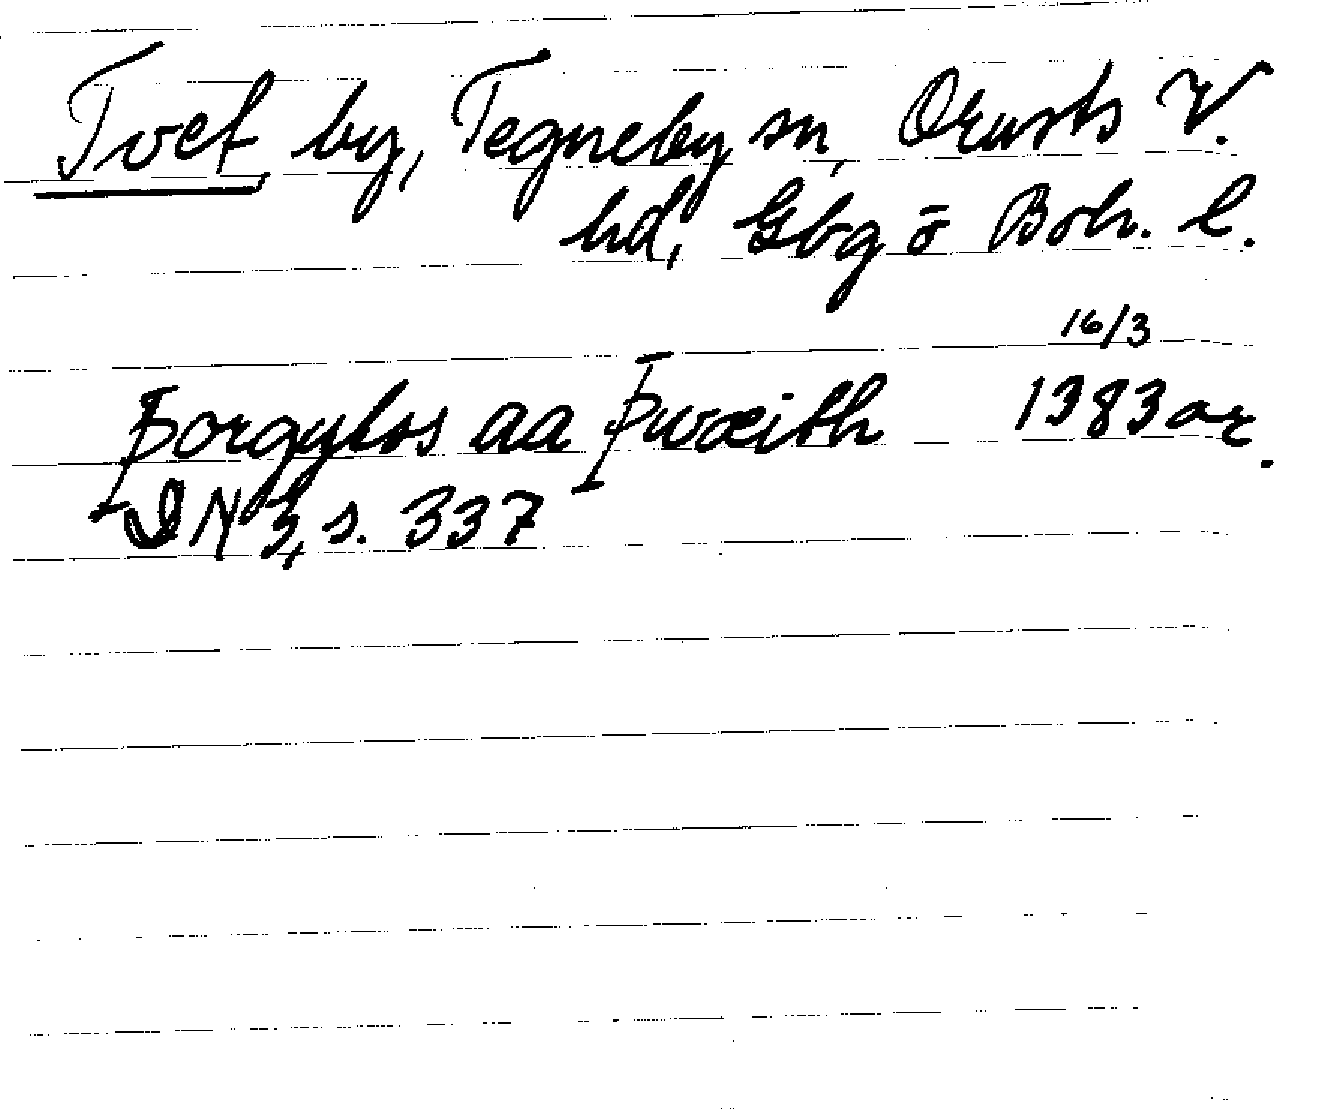 Tvet, by, Tegneby sn, Orusts V.
hd, Gbg ō Boh. l.
16/3
Þorgylss aa Þwæith 1383 or.
DN 3, s. 337